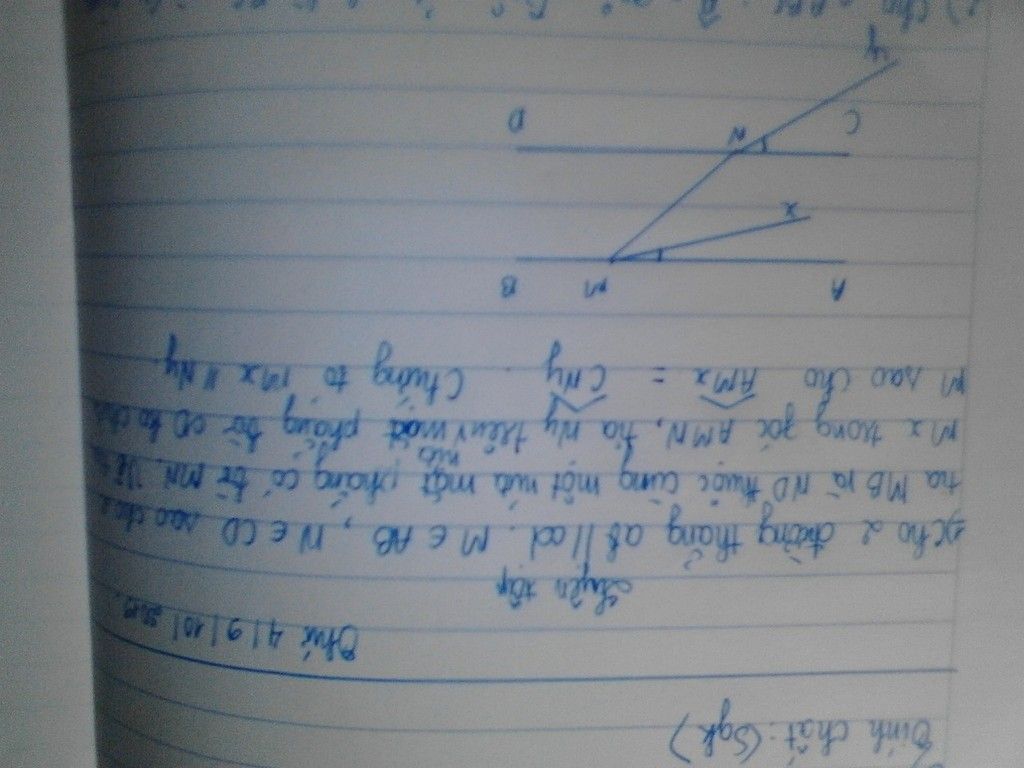 Tính chất: (Sgk)
Thứ 4 | 9 | 10 | 2019.
Luyện tập
1) Cho 2 đường thẳng ab // cd. M ∈ AB, N ∈ CD sao cho 2
tia MB và ND thuộc cùng một nửa mặt phẳng có bờ MN. Vẽ tia
Mx trong góc AMN, tia Ny trên nửa mặt phẳng bờ CD ko chứa
M sao cho AMx = CNy. Chứng tỏ Mx // Ny.
A M B
x
C N D
y